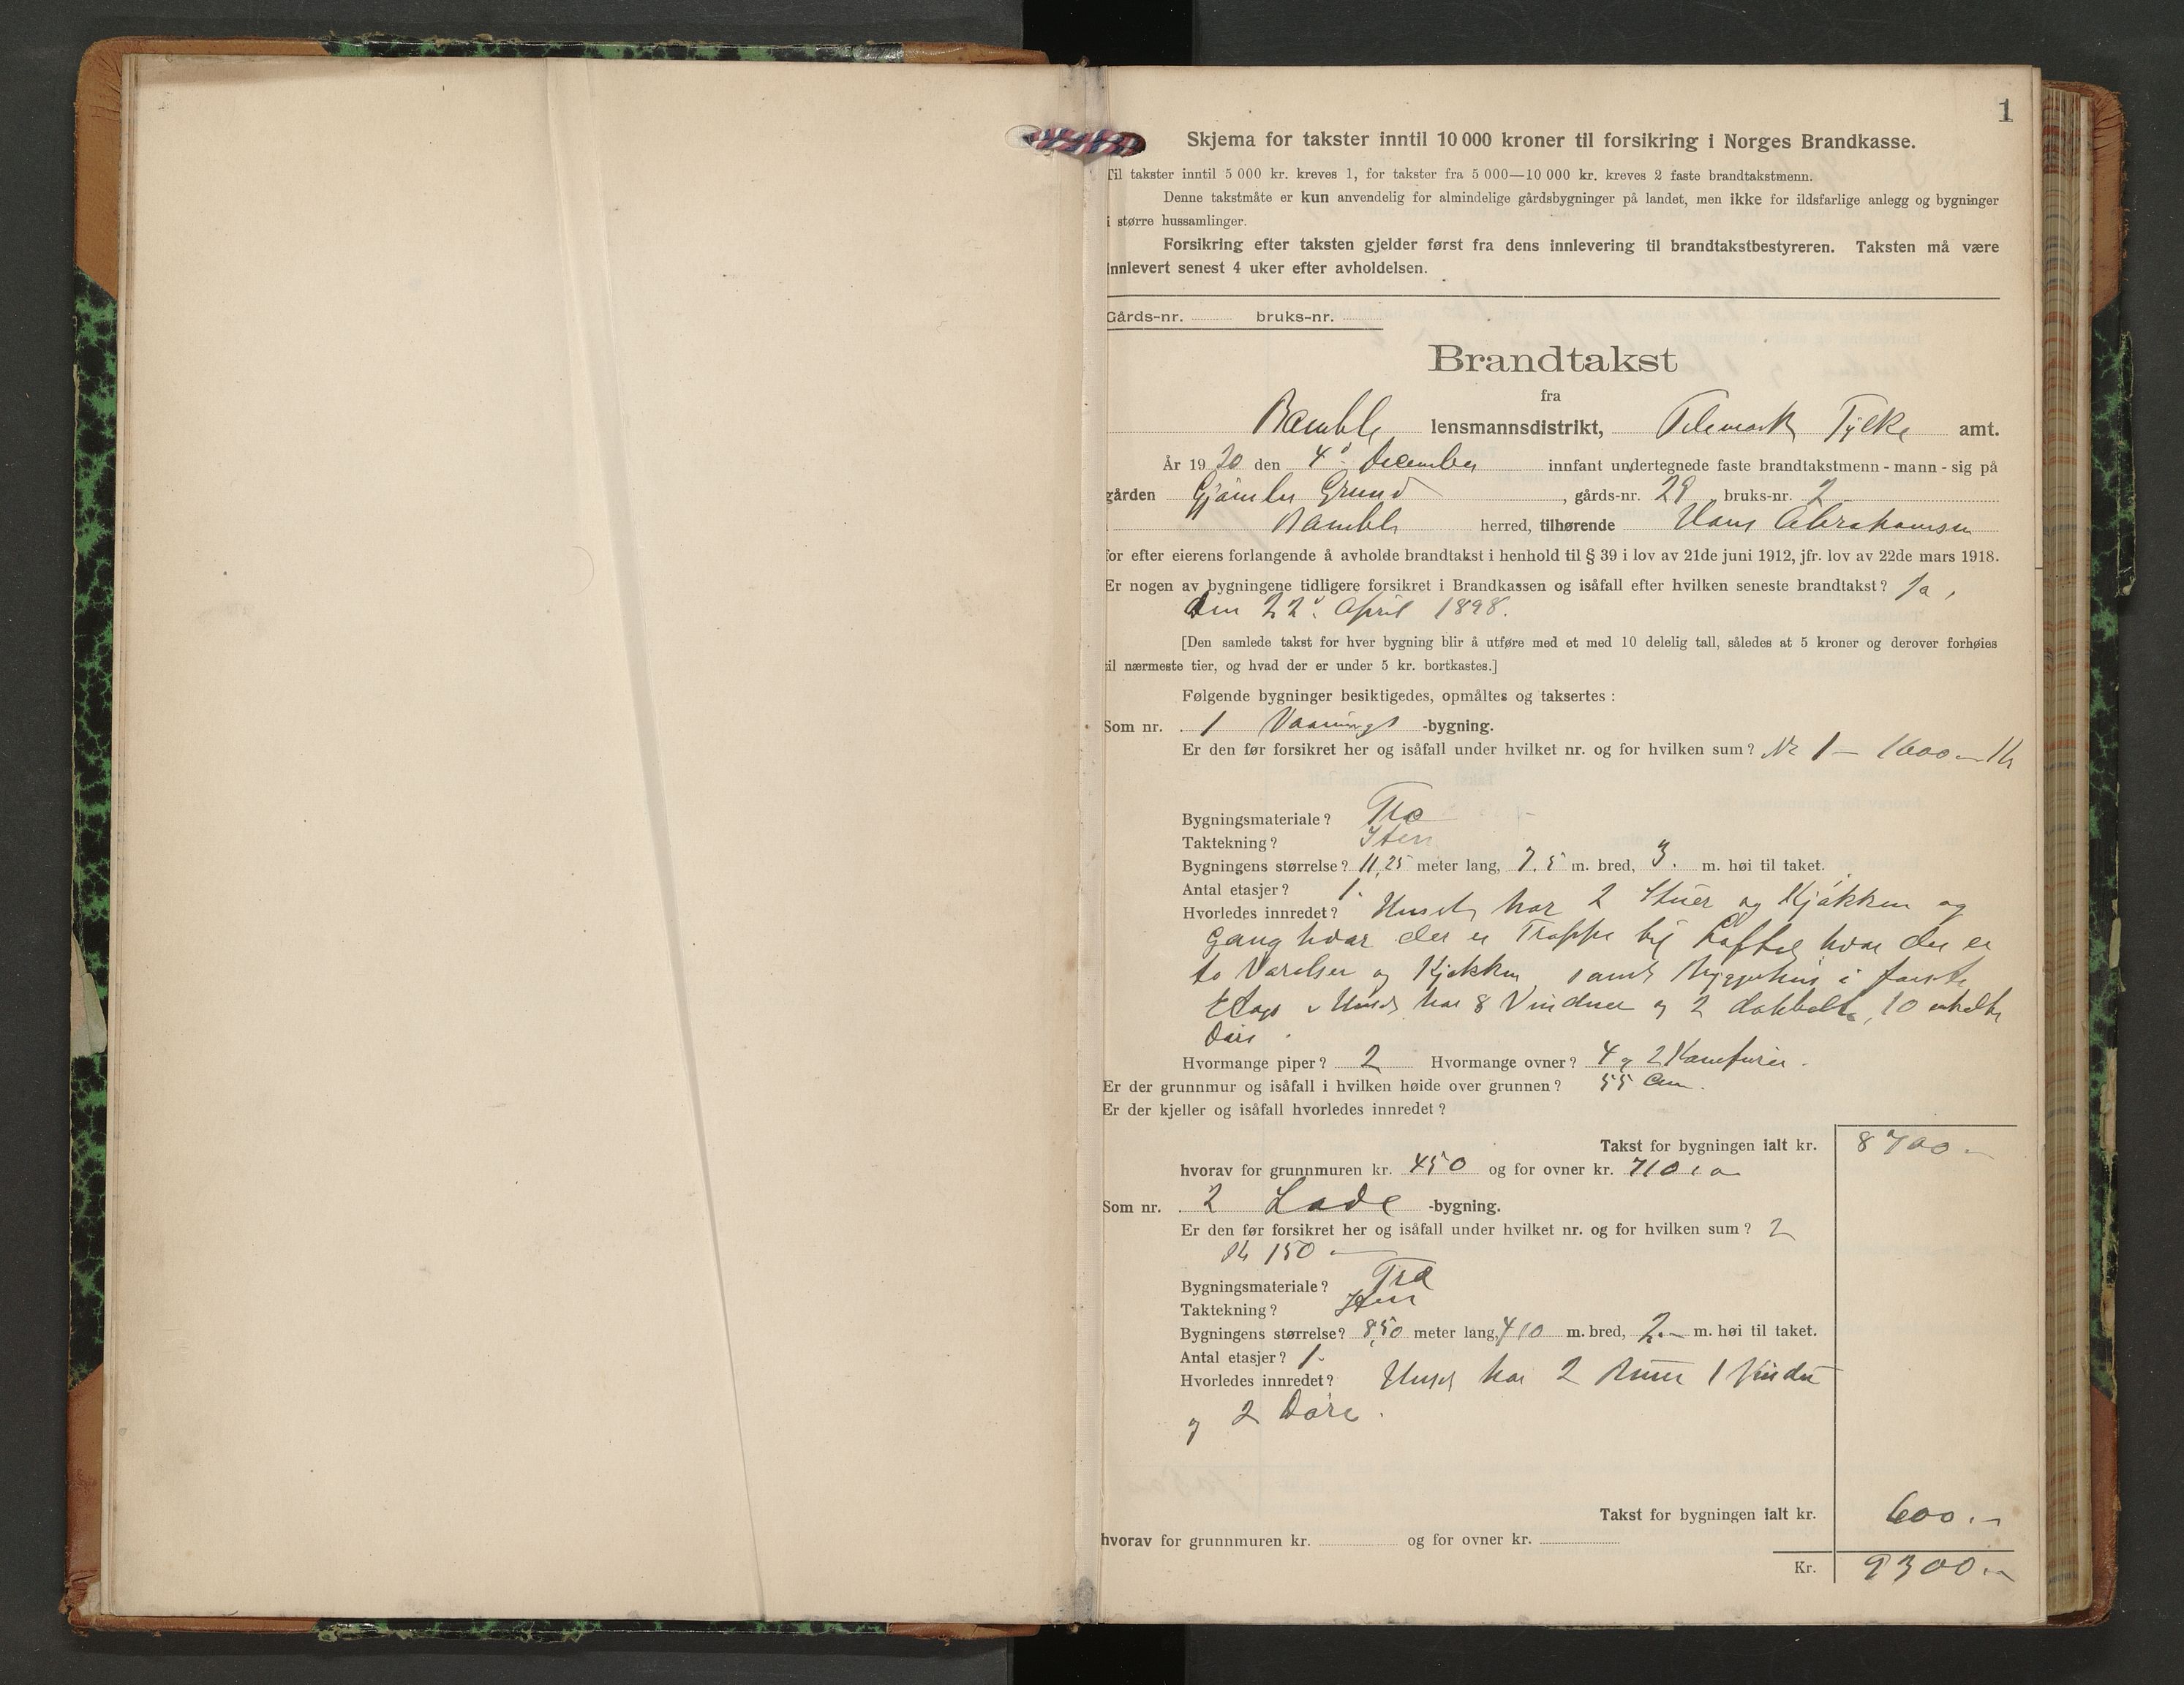 1
Skjema for takster inntil 10 000 kroner til forsikring i Norges Brandkasse.
Til takster inntil 5 000 kr. kreves 1, for takster fra 5 000—10 000 kr. kreves 2 faste brandtakstmenn.
Denne takstmåte er kun anvendelig for almindelige gårdsbygninger på landet, men ikke for ildsfarlige anlegg og bygninger
i større hussamlinger.
Forsikring efter taksten gjelder først fra dens innlevering til brandtakstbestyreren. Taksten må være
innlevert senest 4 uker efter avholdelsen.
Gårds-nr. bruks-nr.
Brandtakst
fra
Bamble lensmannsdistrikt, Telemark Fylke amt.
År 1920 den 4de December innfant undertegnede faste brandtakstmenn - mann - sig på
gården Grund, gårds-nr. 29 bruks-nr. 2
Bamble herred, tilhørende Hans Abrahamsen
for efter eierens forlangende å avholde brandtakst i henhold til § 39 i lov av 21de juni 1912, jfr. lov av 22de mars 1918.
Er nogen av bygningene tidligere forsikret i Brandkassen og isåfall efter hvilken seneste brandtakst? Ja,
den 22de April 1898.
[Den samlede takst for hver bygning blir å utføre med et med 10 delelig tall, således at 5 kroner og derover forhøies
til nærmeste tier, og hvad der er under 5 kr. bortkastes.]
Følgende bygninger besiktigedes, opmåltes og taksertes :
Som nr. 1 Vaanings -bygning.
Er den før forsikret her og isåfall under hvilket nr. og for hvilken sum? Nr 1 — 1600 — Kr
Bygningsmateriale? Træ
Taktekning? Sten
Bygningens størrelse? 11,25 meter lang, 7.5 m. bred, 3. m. høi til taket.
Antal etasjer? 1.
Hvorledes innredet? Huset har 2 Stuer og Kjøkken og
Gang hvor der er Trappe til Loftet hvor der er
to Værelser og Kjøkken samt Bryggerhus i første
Etage. Huset har 8 Vinduer og 2 dobbelte, 10 enkelte
Døre.
Hvormange piper? 2 Hvormange ovner? 4 og 2 Komfurer.
Er der grunnmur og isåfall i hvilken høide over grunnen? 55 Cm.
Er der kjeller og isåfall hvorledes innredet?
Takst for bygningen ialt kr. 8700.—
hvorav for grunnmuren kr. 450 og for ovner kr. 710.
Som nr. 2 Lade -bygning.
Er den før forsikret her og isåfall under hvilket nr. og for hvilken sum? 2
Kr 150 —
Bygningsmateriale? Træ
Taktekning? Sten
Bygningens størrelse? 8,50 meter lang, 410 m. bred, 2.— m. høi til taket.
Antal etasjer? 1.
Hvorledes innredet? Huset har 2 Rum 1 Vindu
og 2 Døre.
Takst for bygningen ialt kr. 600.—
hvorav for grunnmuren kr. og for ovner kr.
Kr. 9300.—